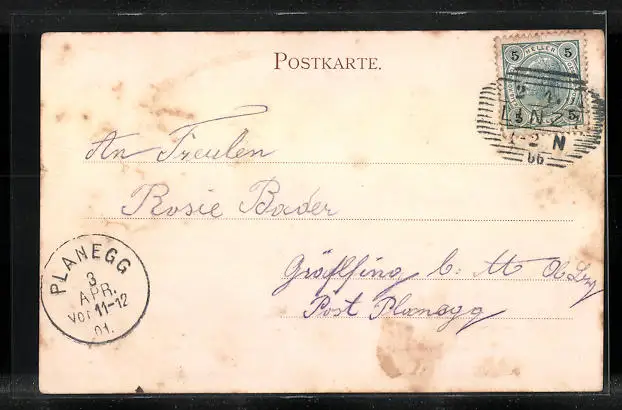 POSTKARTE.
5 HELLER 5
5 5
2 4
NZ
1-2 N
66
An Freulen
Rosie Bader
Gräflfing b: M
Post Planegg
PLANEGG
3
APR.
Vor 11-12
01.